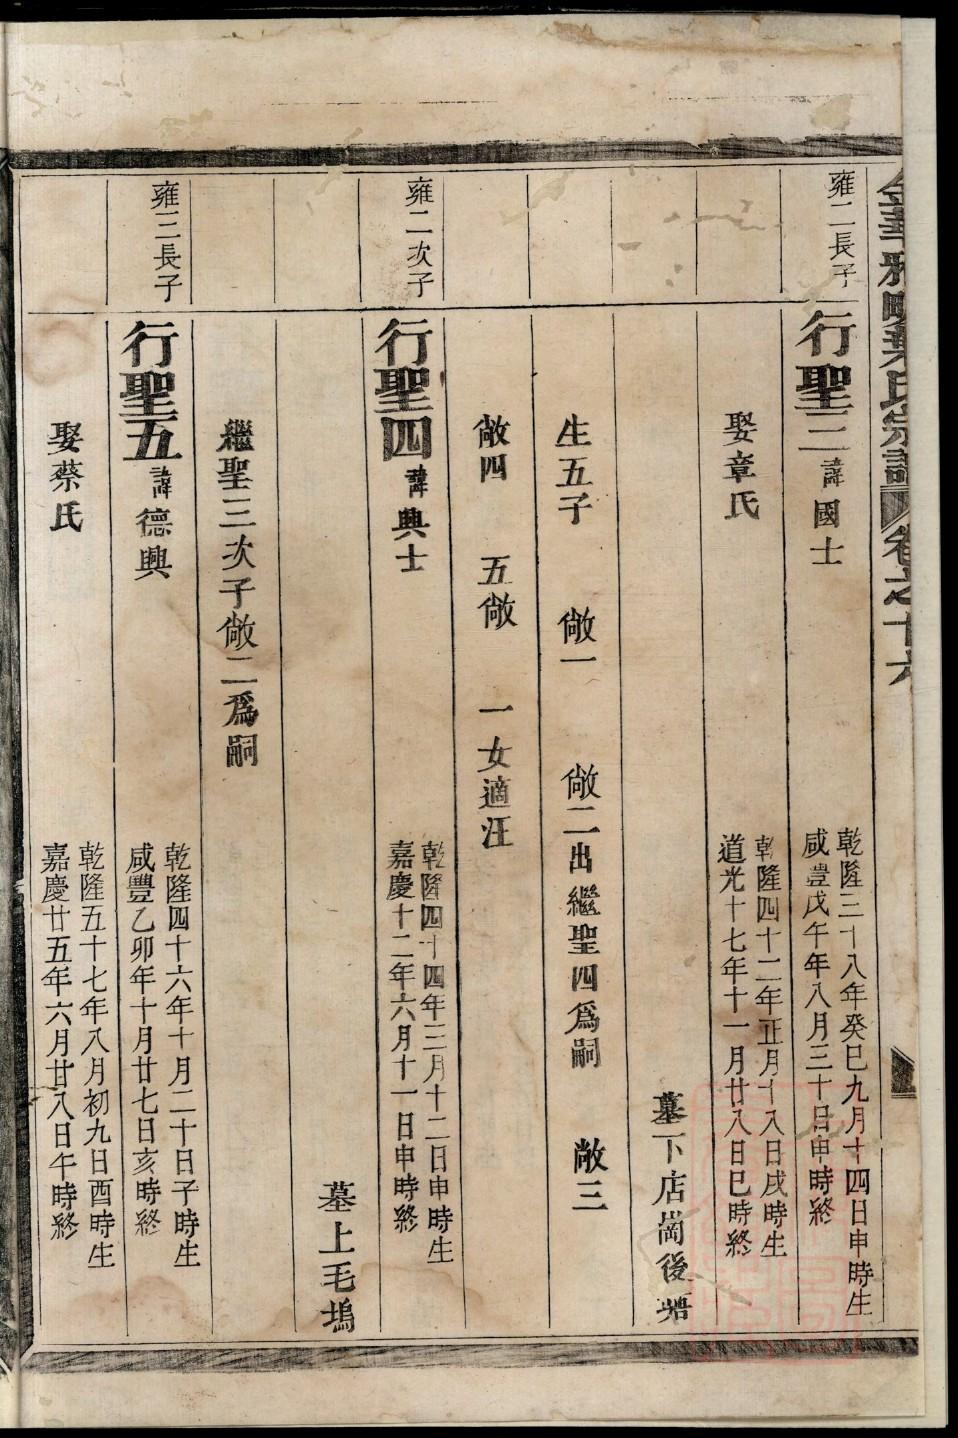 金華雅畈葉氏宗譜 卷之十六
雍二長子
行聖三 諱國士
乾隆三十八年癸巳九月十四日申時生
咸豊戊午年八月三十日申時終
娶章氏
乾隆四十二年正月十八日戌時生
道光十七年十一月廿八日巳時終
墓下店崗後塘
生五子 敞一 敞二出繼聖四爲嗣 敞三
敞四 五敞 一女適汪
雍二次子
行聖四 諱興士
乾隆四十四年三月十二日申時生
嘉慶十二年六月十一日申時終
墓上毛塢
繼聖三次子敞二爲嗣
雍三長子
行聖五 諱德興
乾隆四十六年十月二十日子時生
咸豐乙卯年十月廿七日亥時終
娶蔡氏
乾隆五十七年八月初九日酉時生
嘉慶廿五年六月廿八日午時終